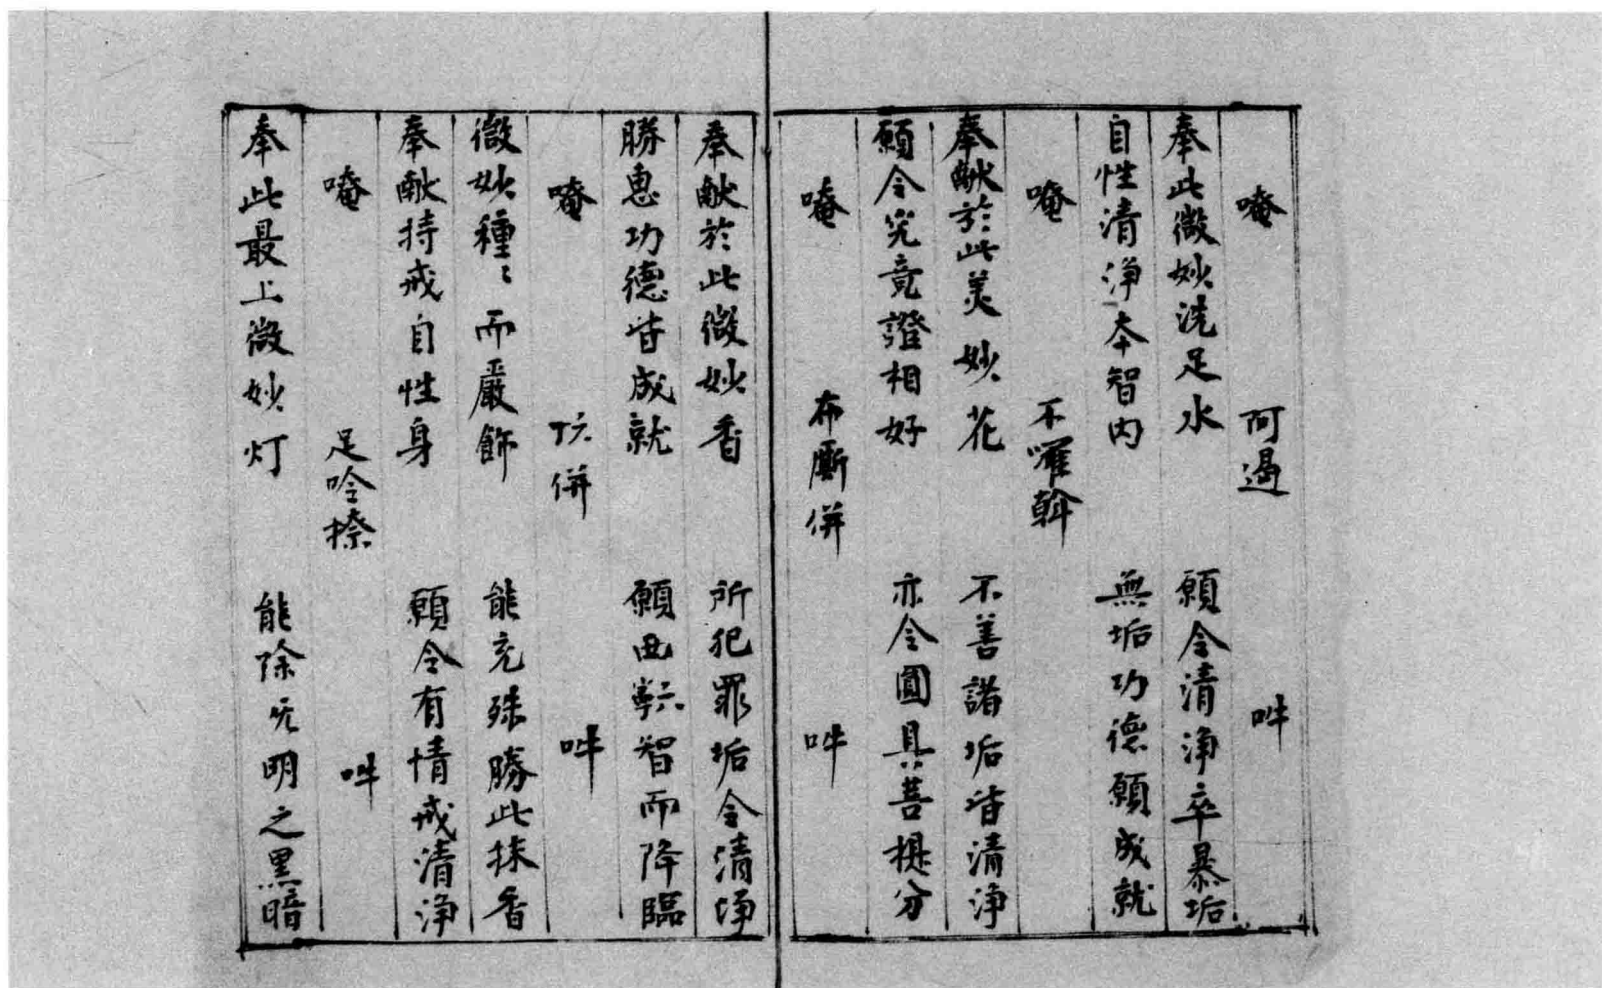 唵 阿遏 吽
奉此微妙洗足水 願令清淨卒暴垢
自性清淨本智內 無垢功德願成就
唵 不囉斡 吽
奉献於此美妙花 不善諸垢皆清淨
願令究竟證相好 亦令圓具菩提分
唵 布厮併 吽
奉献於此微妙香 所犯罪垢令清淨
勝惠功德皆成就 願 智而降臨
唵 併 吽
微妙種〻而嚴飾 能充殊勝此抹香
奉献持戒自性身 願令有情戒清淨
唵 足吟捺 吽
奉此最上微妙灯 能除无明之黑暗